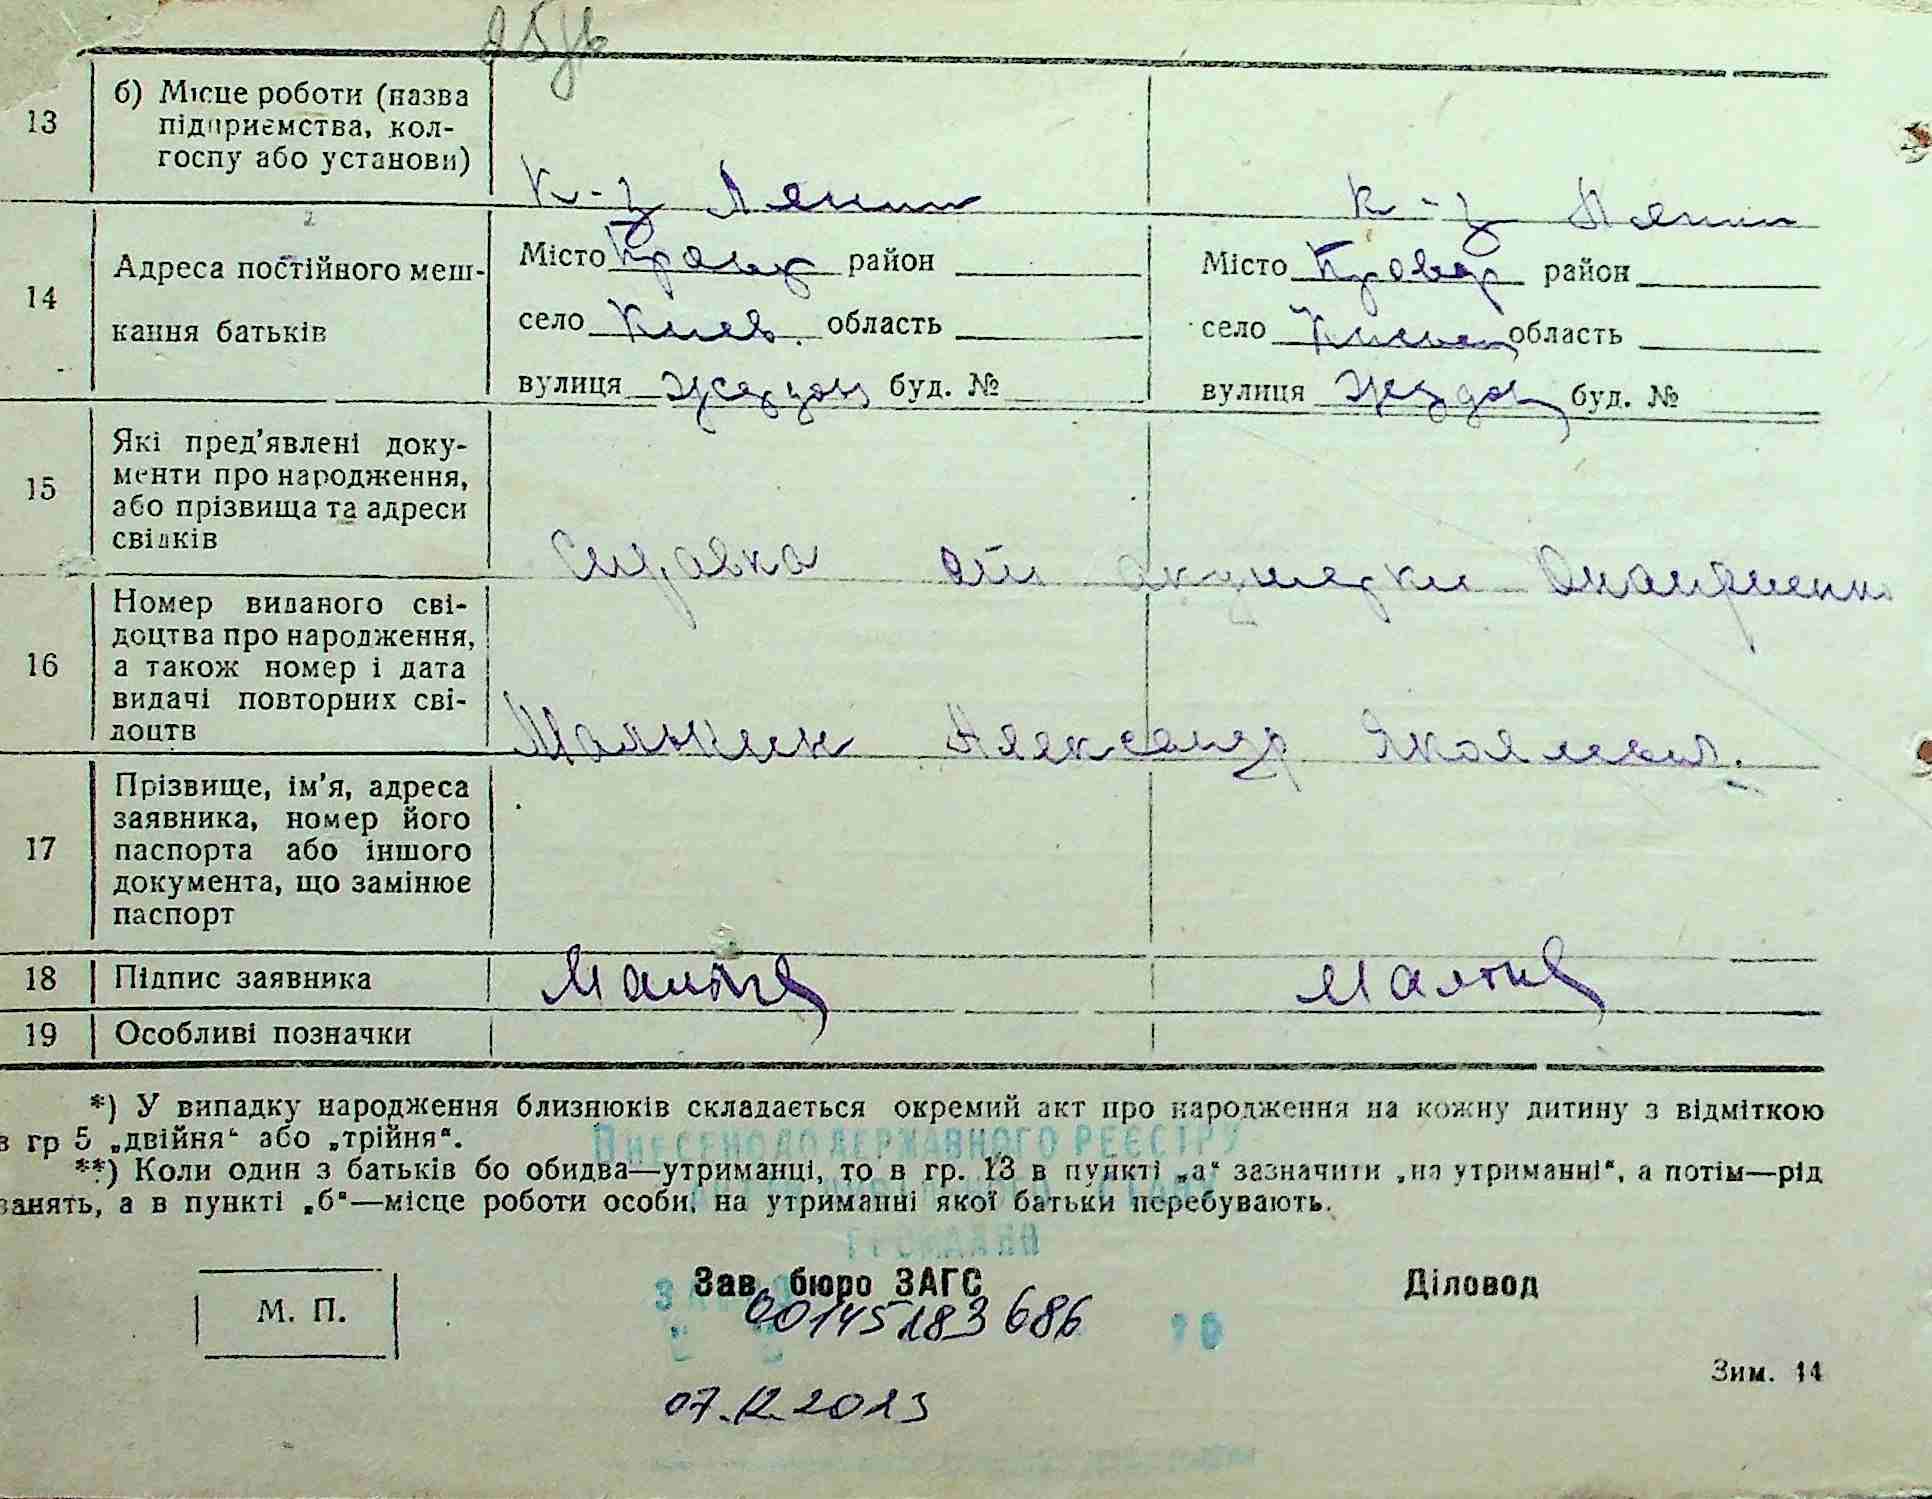 13
б) Місце роботи (назва
підприємства, кол-
госпу або установи)
К-з Ленин
К-з Ленин
14
Адреса постійного меш-
кання батьків
Місто район
село Киев. область
вулиця буд. №
Місто район
село область
вулиця буд. №
15
Які пред’явлені доку-
менти про народження,
або прізвища та адреси
свідків
Справка от акушерки
16
Номер виданого сві-
доцтва про народження,
а також номер і дата
видачі повторних сві-
доцтв
Александр
17
Прізвище, ім’я, адреса
заявника, номер його
паспорта або іншого
документа, що замінює
паспорт
18
Підпис заявника
19
Особливі позначки
*) У випадку народження близнюків складається окремий акт про народження на кожну дитину з відміткою
в гр 5 „двійня“ або „трійня“.
**) Коли один з батьків бо обидва—утриманці, то в гр. 13 в пункті „а“ зазначити „на утриманні“, а потім—рід
занять, а в пункті „б“—місце роботи особи, на утриманні якої батьки перебувають.
ВНЕСЕНО ДО ДЕРЖАВНОГО РЕЄСТРУ
ГРОМАДЯН
М. П.
Зав. бюро ЗАГС
Діловод
00145183686
07.12.2013
Зим. 14